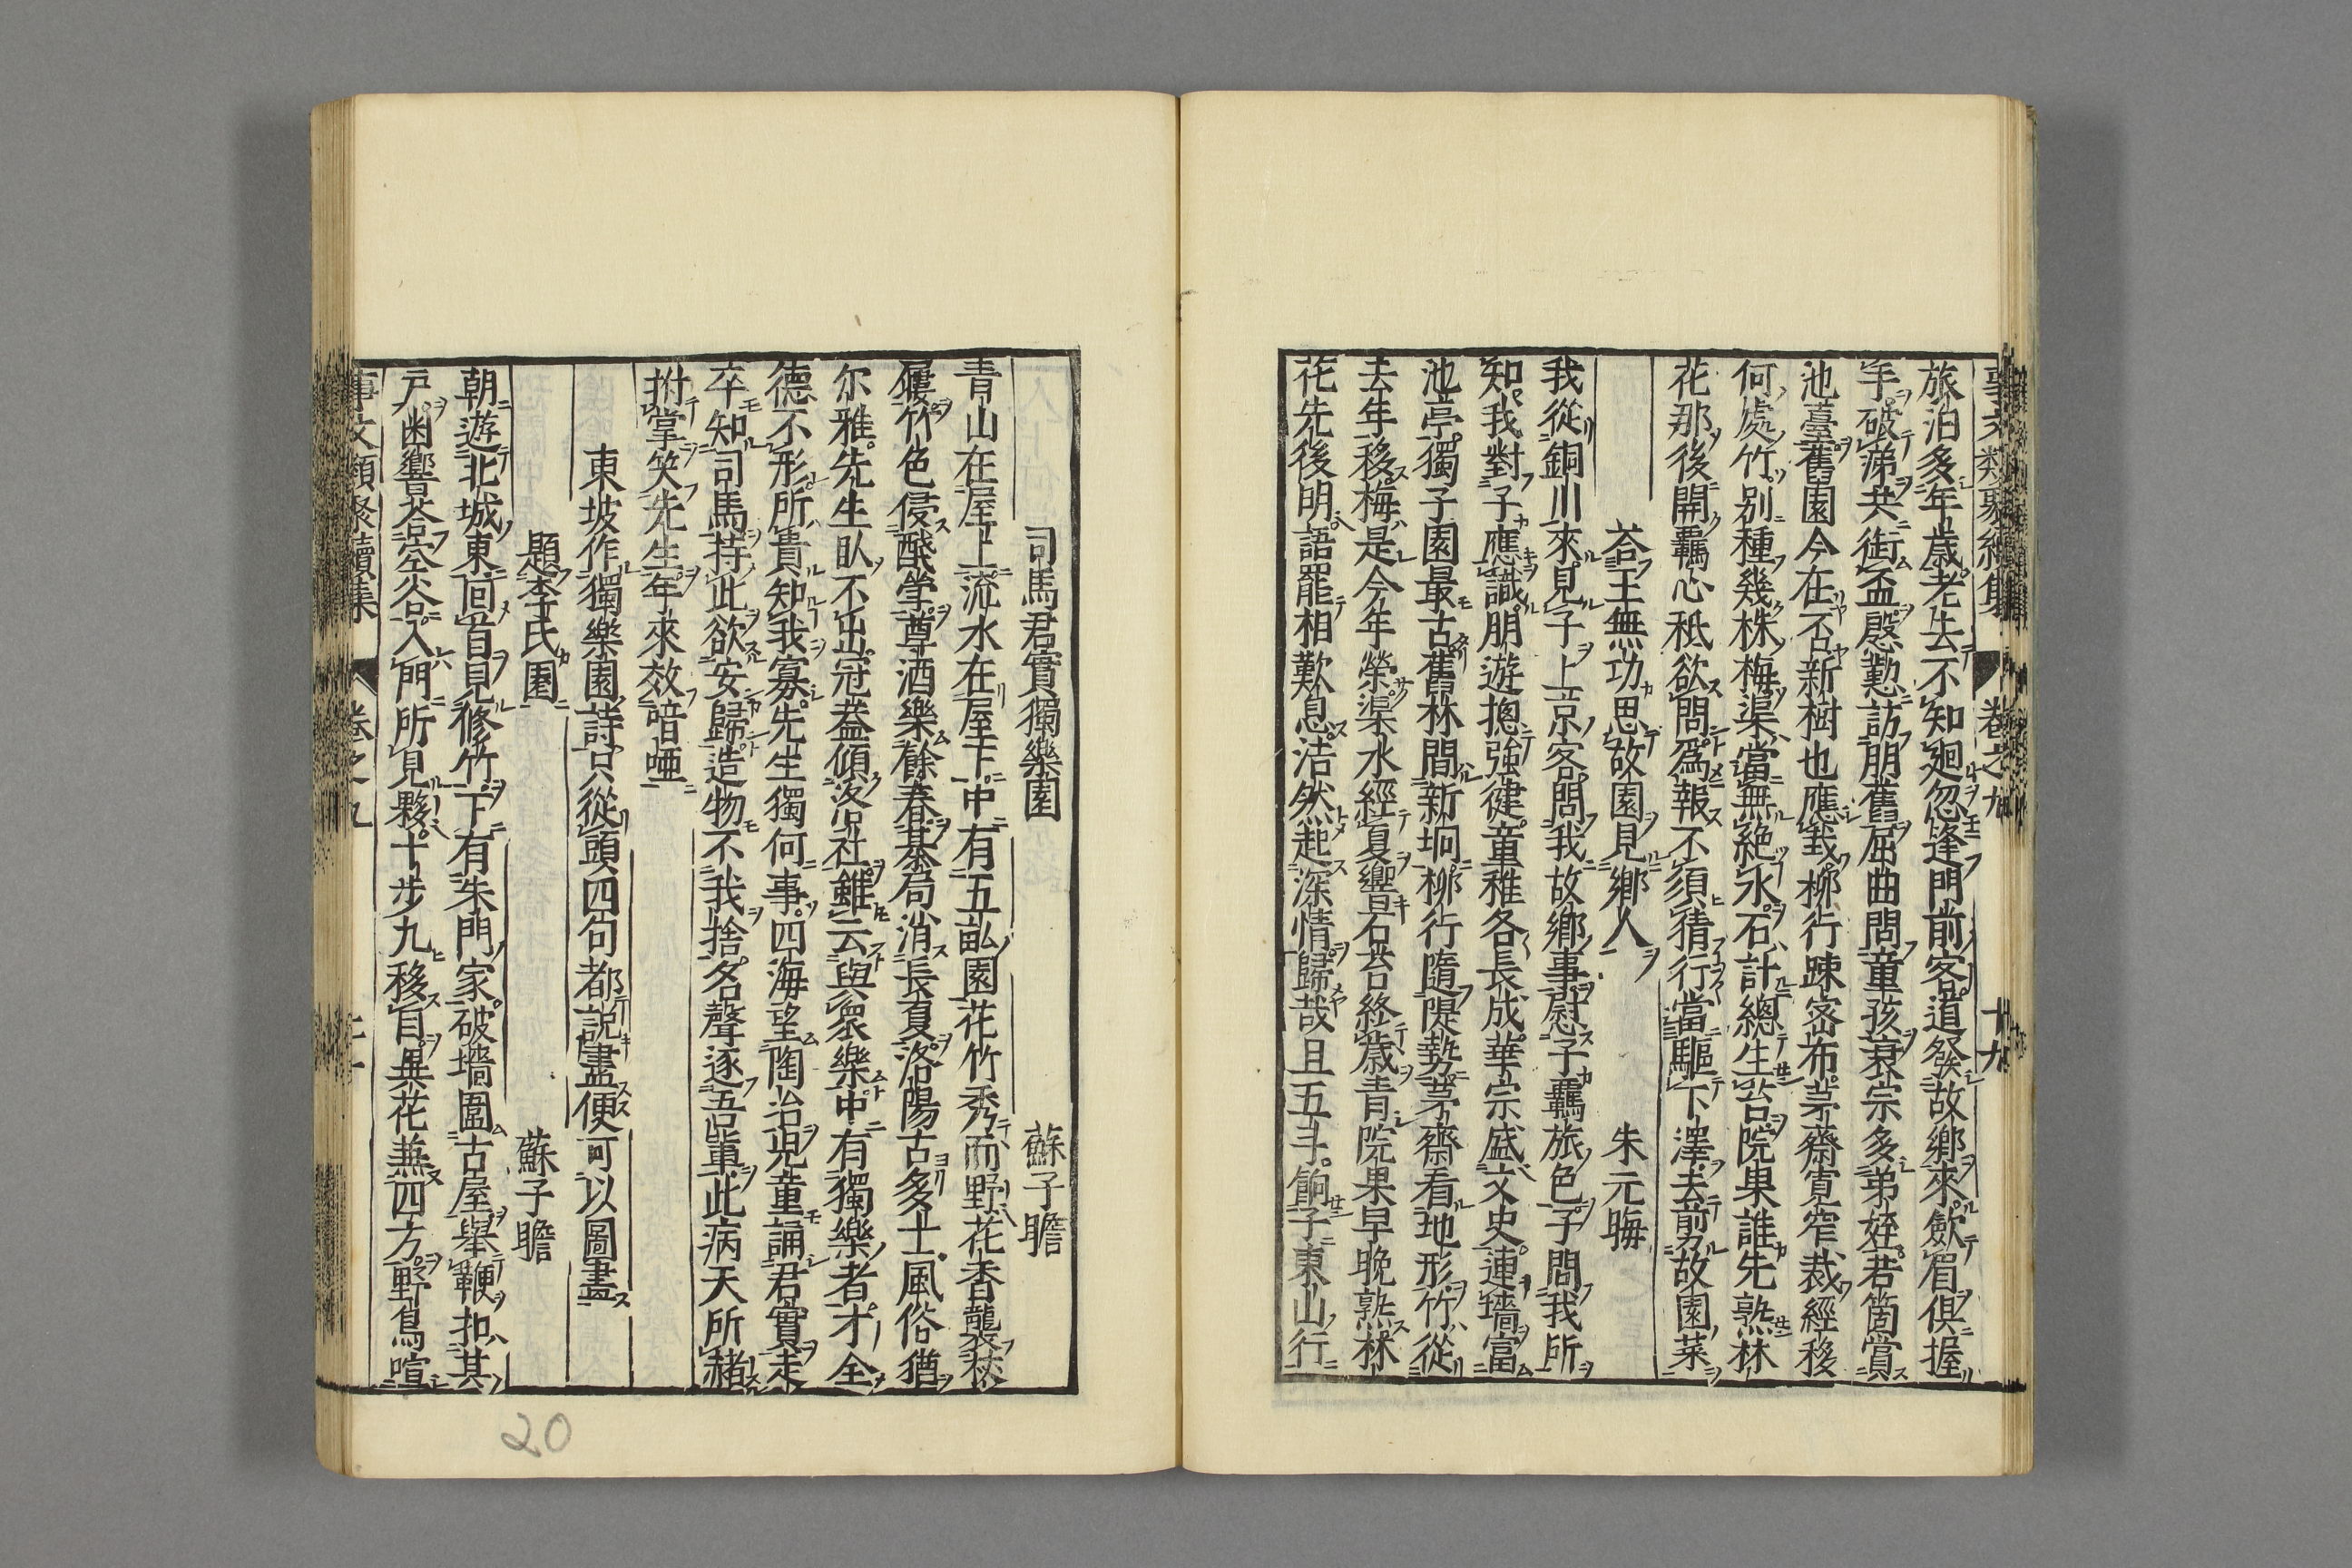 事文類聚續集 卷之九 十九
旅泊多年歲老去不知迴忽逢門前客道發故鄉來歛眉俱握
手破涕共銜盃殷懃訪朋舊屈曲問童孩衰宗多弟姪若箇賞
池臺舊園今在否新樹也應栽柳行踈密布茅齋寛窄裁經移
何處竹别種幾株梅渠當無絶水石計總生苔院果誰先熟林
花那後開羈心秪欲問爲報不須猜行當驅下澤去剪故園菜
荅王無功思故園見鄉人 朱元晦
我從銅川來見子上京客問我故鄉事慰子羈旅色子問我所
知我對子應識朋遊摠強健童稚各長成華宗盛文史連墻富
池亭獨子園最古舊林間新坰柳行隨隄勢茅齋看地形竹從
去年移梅是今年榮渠水經夏響石苔終歲青院果早晚熟林
花先後明語罷相歎息浩然起深情歸哉且五斗餉子東山行
司馬君實獨樂園 蘇子瞻
青山在屋上流水在屋下中有五畝園花竹秀而野花香襲杖
屨竹色侵醆斝尊酒樂餘春棊局消長夏洛陽古多士風俗猶
尔雅先生臥不出冠蓋傾洛社雖云與衆樂中有獨樂者才全
德不形所貴知我寡先生獨何事四海望陶冶兒童誦君實走
卒知司馬持此欲安歸造物不我捨名聲逐吾軰此病天所赭
拊掌笑先生年來效喑啞
東坡作獨樂園詩只從頭四句都說盡便可以圖畫
題李氏園 蘇子瞻
朝遊北城東回首見修竹下有朱門家破墻圍古屋舉鞭扣其
戶幽響荅空谷入門所見夥十步九移目異花兼四方野鳥喧
事文類聚續集 卷之九
20